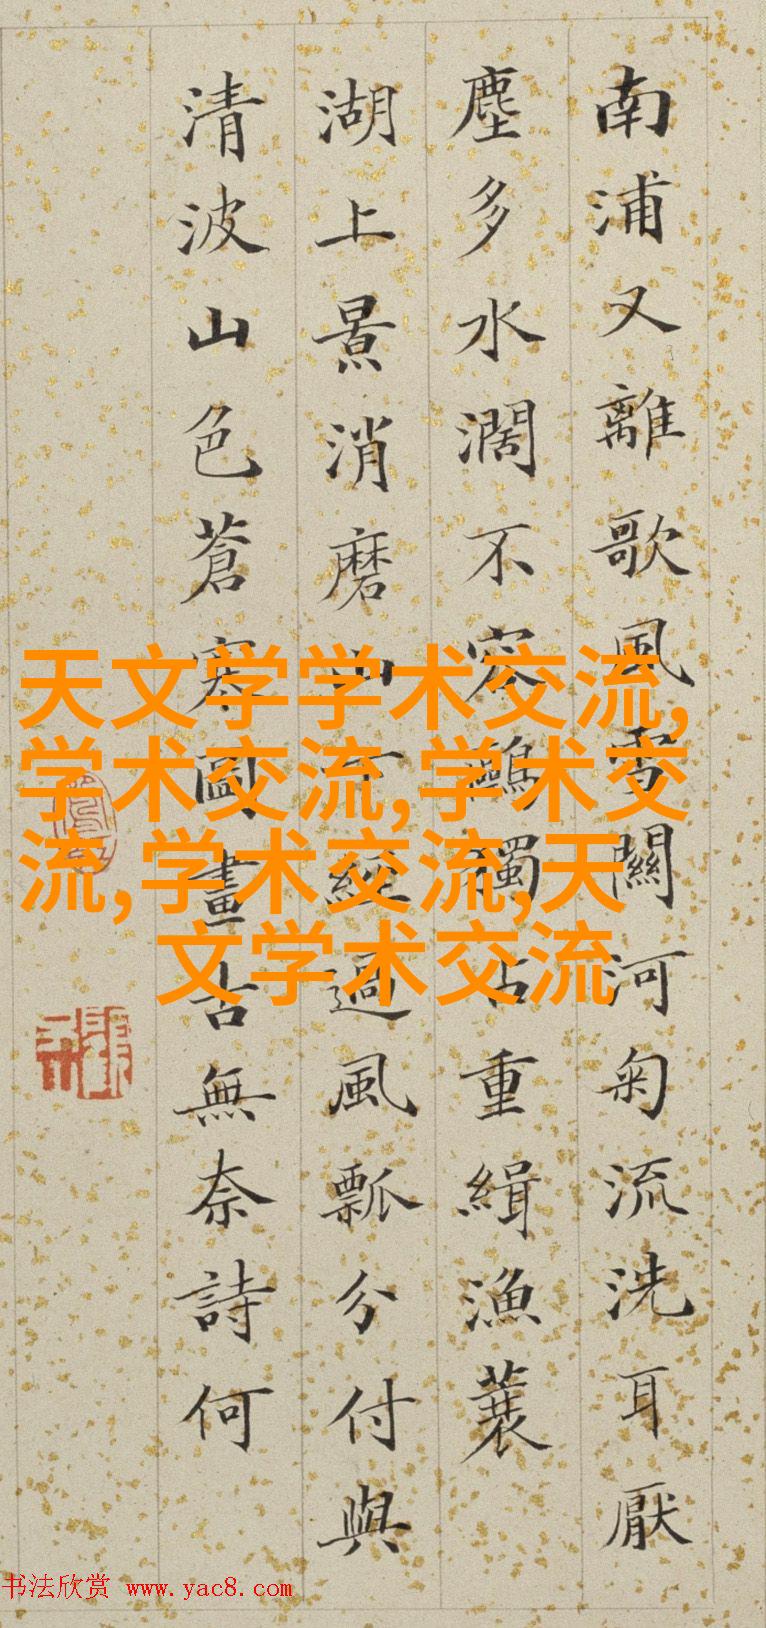 南浦又離歌風雪關河匊流洗耳厭
塵多水濶不容鷗獨占重緝漁蓑
湖上景消磨山下經過風瓢分付與
清波山色蒼寒圖畫古無奈詩何
天文学学术交流,
学术交流,学术交
流,学术交流,天
文学术交流
书法欣赏 www.yac8.com